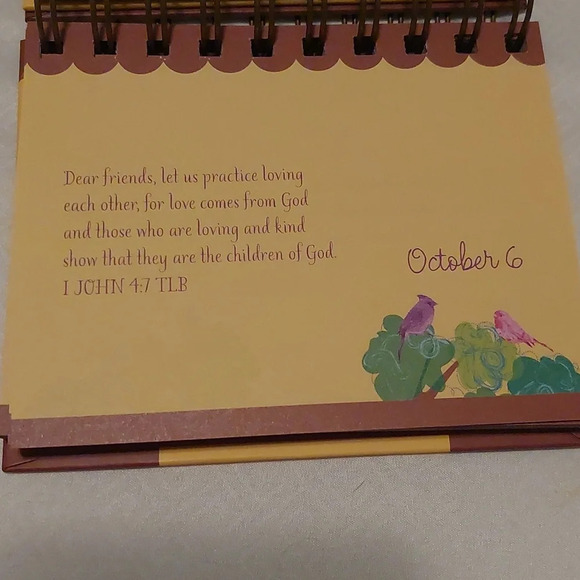 Dear friends, let us practice loving
each other, for love comes from God
and those who are loving and kind
show that they are the children of God.
I JOHN 4:7 TLB
October 6